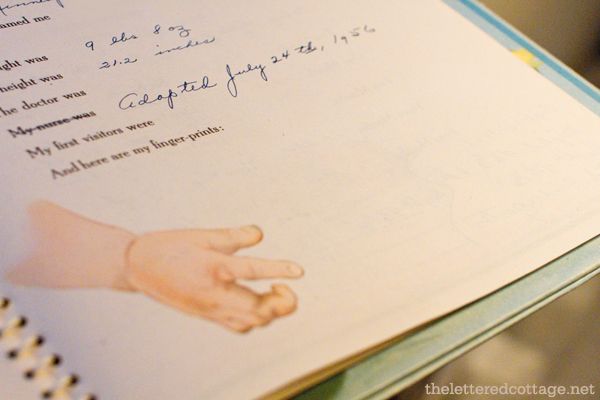 amed me
ght was 9 lbs 8 oz
height was 21.2 inches
he doctor was
My nurse was Adopted July 24th, 1956
My first visitors were
And here are my finger-prints:
theletteredcottage.net